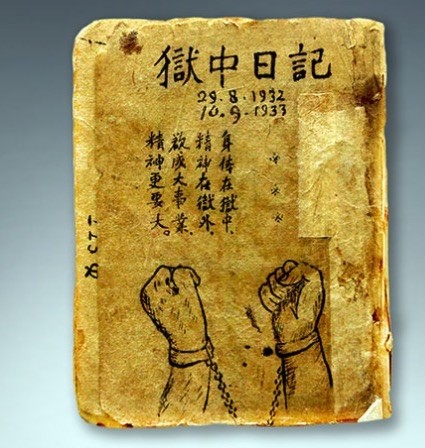 獄中日記
29.8.1932
10.9.1933
身体在獄中,
精神在獄外,
欲成大事業,
精神更要大。